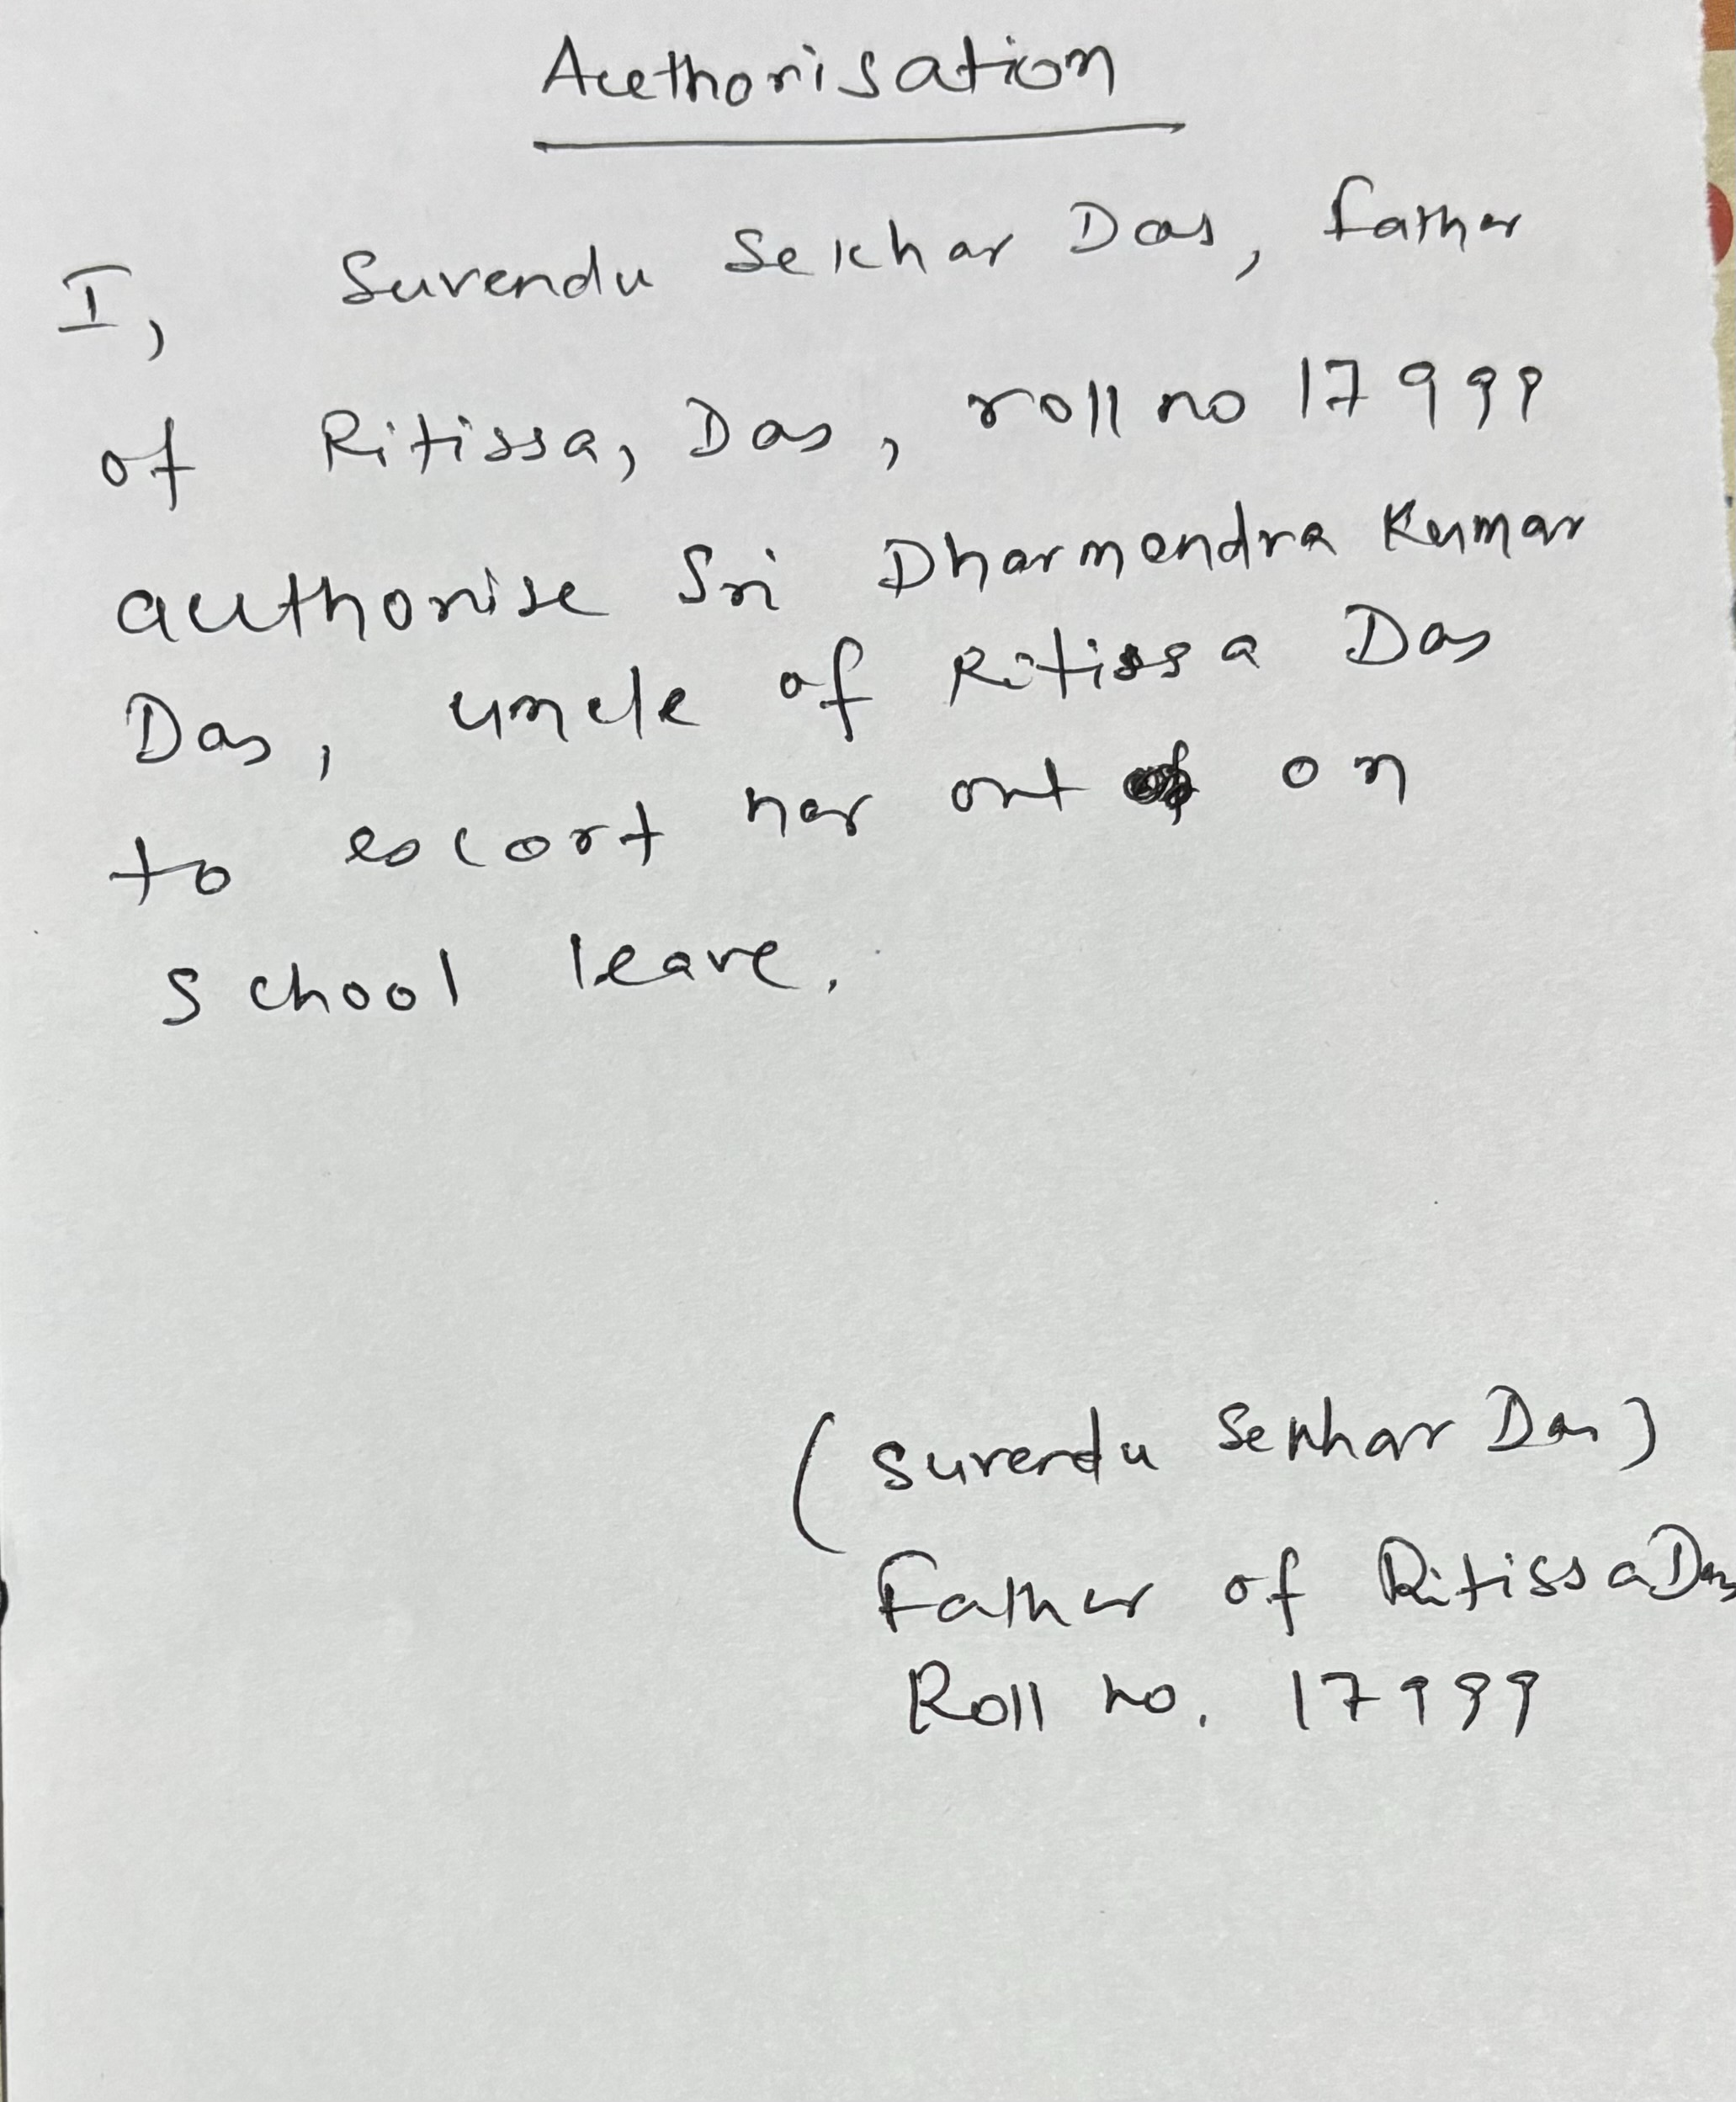 Authorisation
I, Suvendu Sekhar Das, father
of Ritissa, Das, roll no 17999
authorise Sri Dharmendra Kumar
Das, uncle of Ritissa Das
to escort her out on
school leave.
(Suvendu Sekhar Das)
Father of Ritissa Das
Roll no. 17999